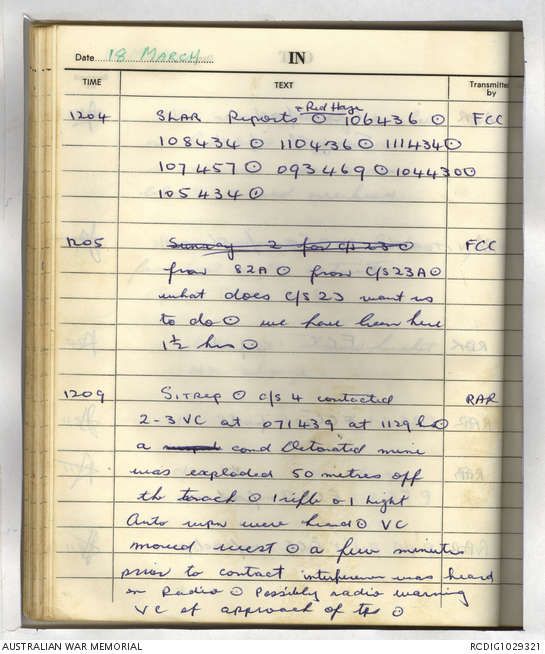 Date 18 MARCH IN
TIME TEXT Transmitted by
1204 SLAR Reports + Red Haze ⊙ 106436 ⊙ FCC
108434 ⊙ 110436 ⊙ 111434⊙
107457 ⊙ 093469 ⊙ 104430⊙
105434⊙
1205 Sunray 2 for C/S 23 ⊙ FCC
from 82A ⊙ from C/S23A⊙
what does C/S 23 want us
to do ⊙ we have been here
1½ hrs ⊙
1209 SITREP ⊙ C/S 4 contacted RAR
2-3 VC at 071439 at 1129 hrs⊙
a comd Detonated mine
was exploded 50 metres off
the track ⊙ 1 rifle & 1 light
Auto wpn were heard⊙ VC
moved west ⊙ a few minutes
prior to contact interference was heard
on Radio ⊙ Possibly radio warning
VC of approach of tps ⊙
AUSTRALIAN WAR MEMORIAL RCDIG1029321